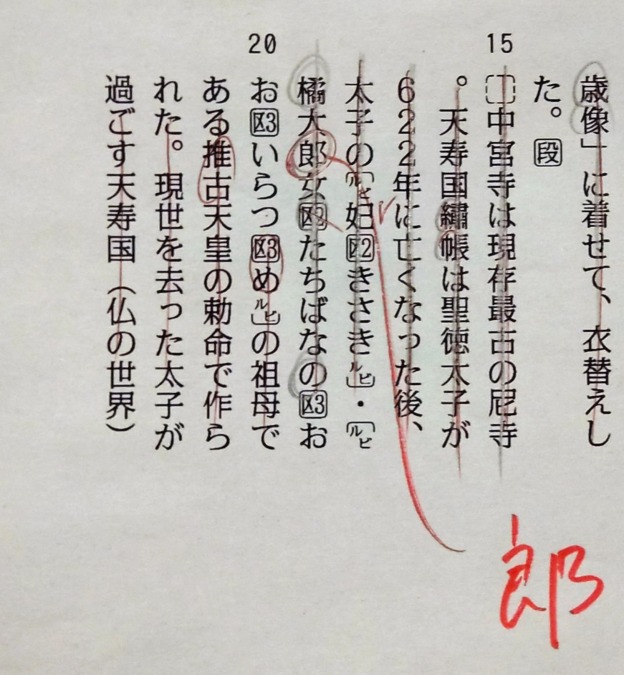 歳像」に着せて、衣替えし
た。段
15
中宮寺は現存最古の尼寺
。天寿国繡帳は聖徳太子が
622年に亡くなった後、
太子の〔ルビ妃区2きさきルビ〕・〔ルビ
橘大郎女区たちばなの区3お
20
お区3いらつ区3めルビ〕の祖母で
ある推古天皇の勅命で作ら
れた。現世を去った太子が
過ごす天寿国（仏の世界）
郎